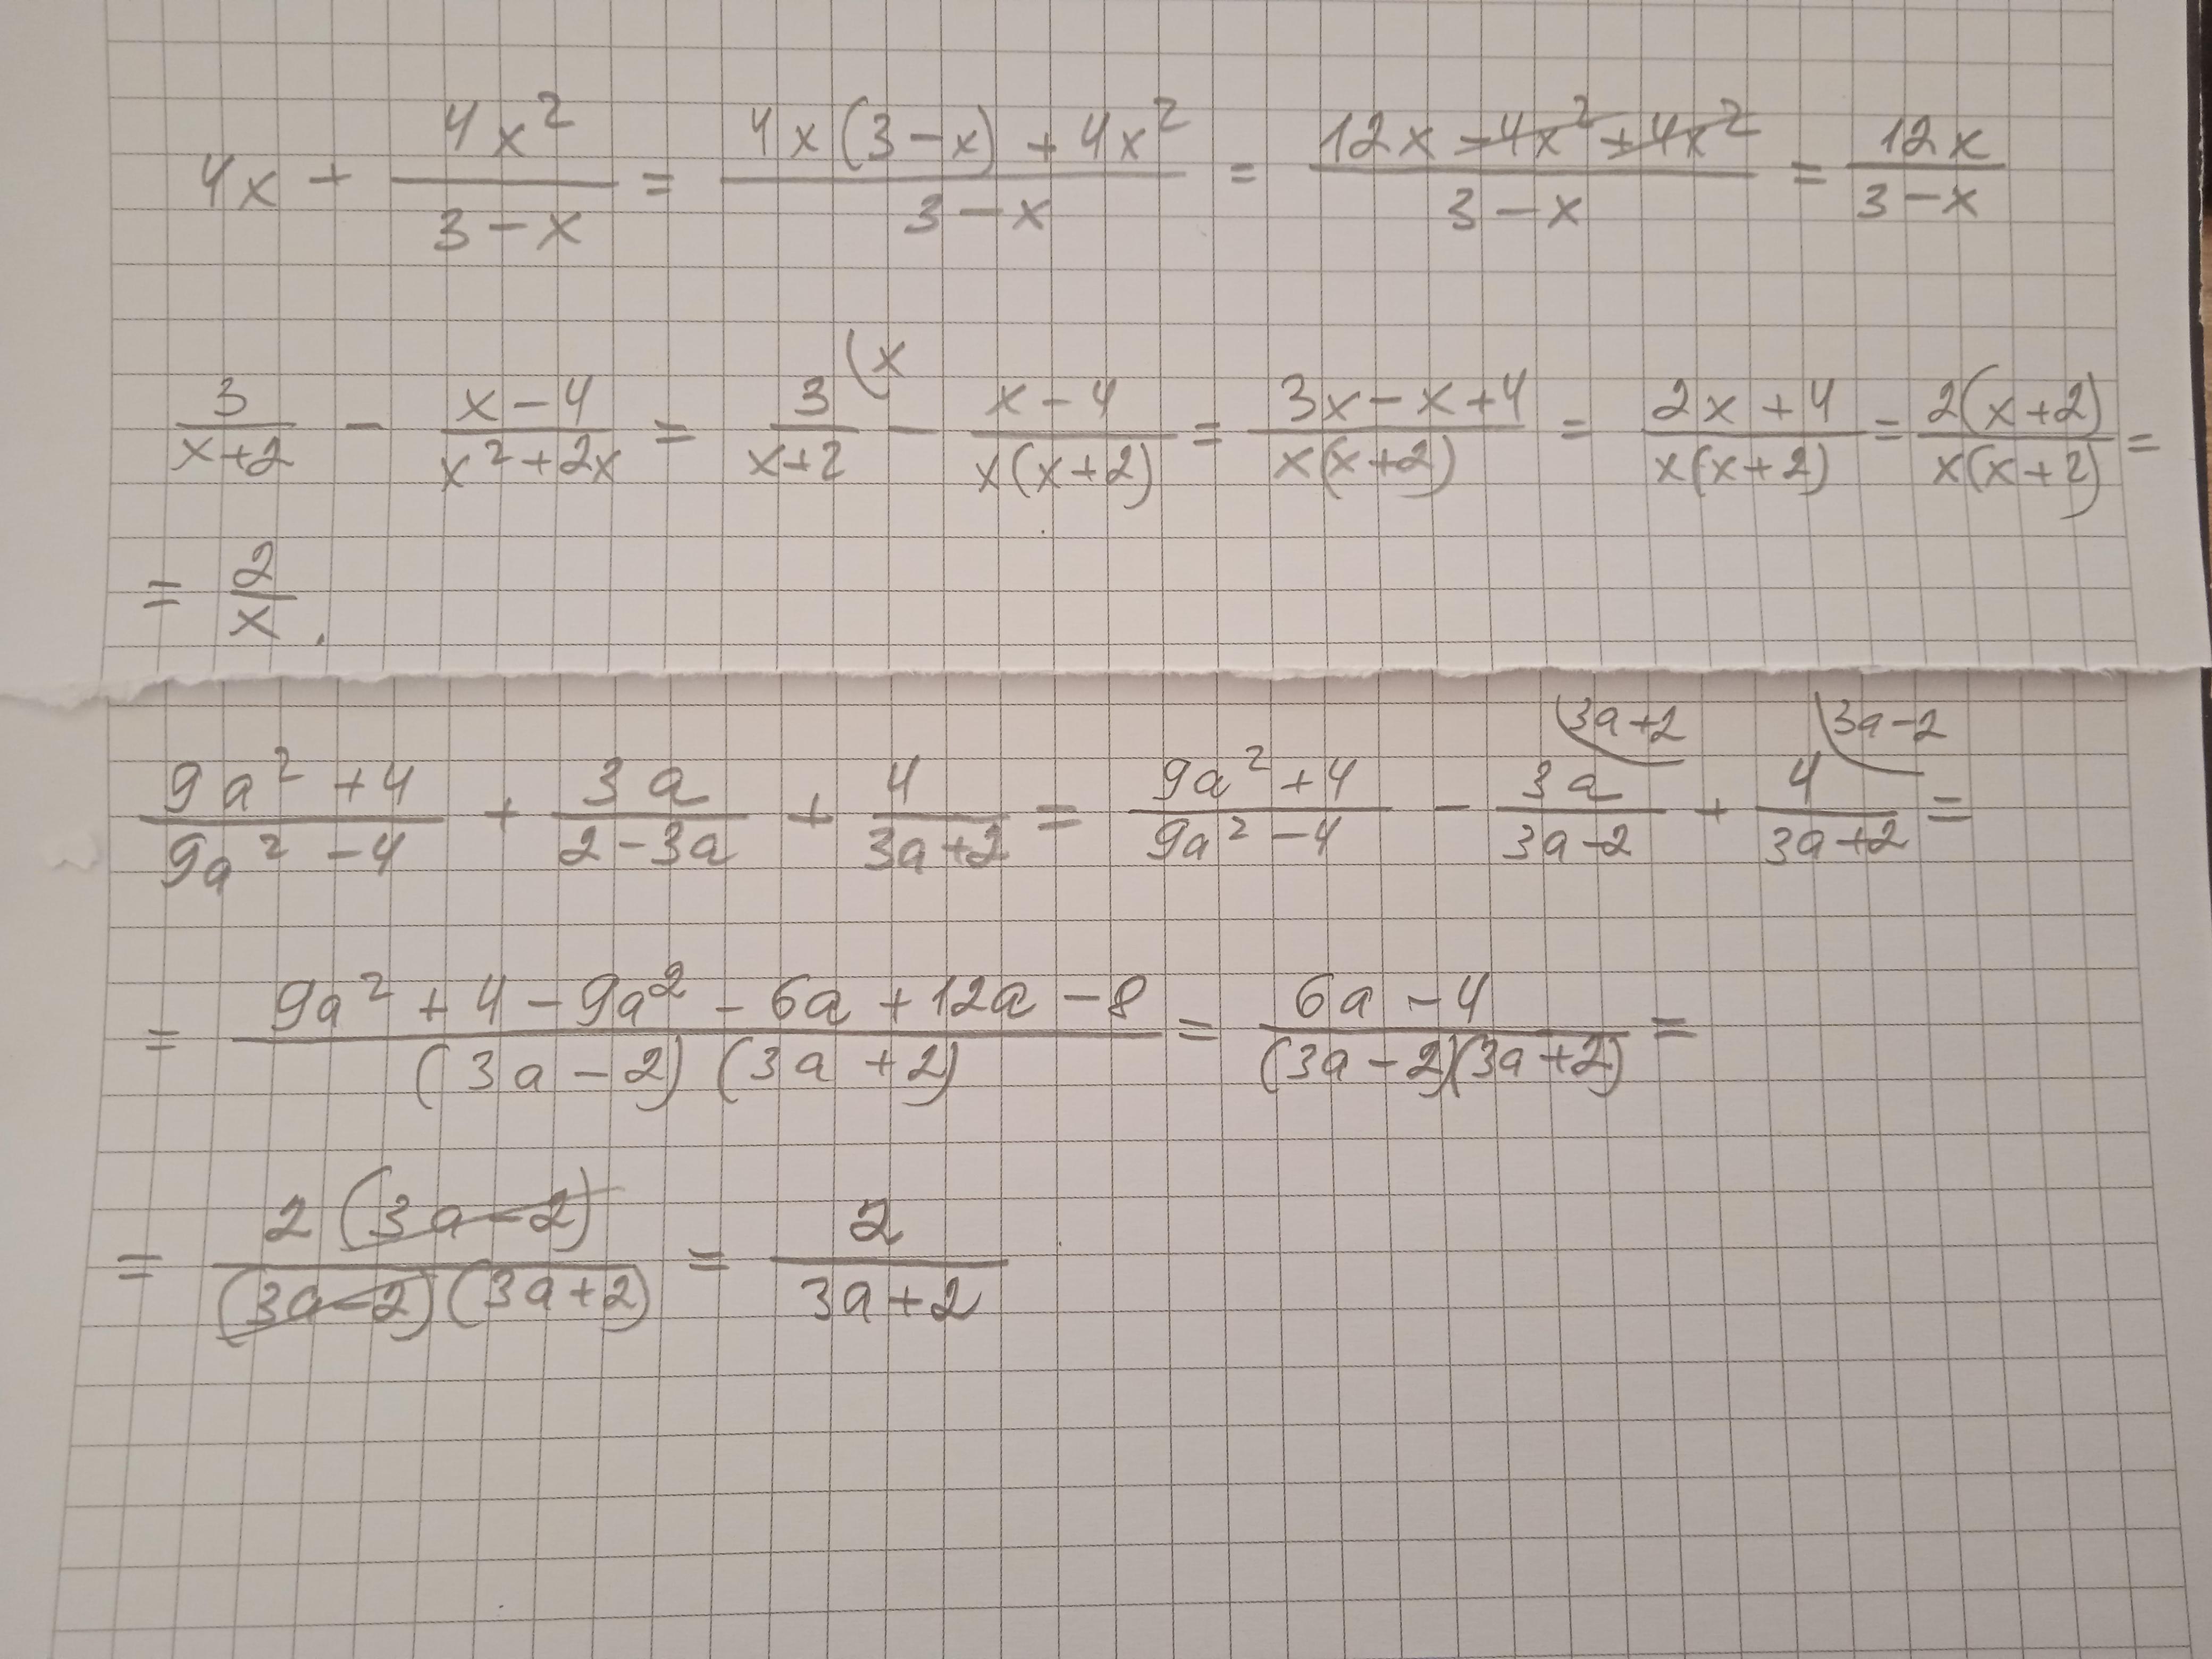 4x + \frac{4x^2}{3-x} = \frac{4x(3-x)+4x^2}{3-x} = \frac{12x-4x^2+4x^2}{3-x} = \frac{12x}{3-x}
\frac{3}{x+2} - \frac{x-4}{x^2+2x} = \frac{3}{x+2}^{(x} - \frac{x-4}{x(x+2)} = \frac{3x-x+4}{x(x+2)} = \frac{2x+4}{x(x+2)} = \frac{2(x+2)}{x(x+2)} =
= \frac{2}{x}.
\frac{9a^2+4}{9a^2-4} + \frac{3a}{2-3a} + \frac{4}{3a+2} = \frac{9a^2+4}{9a^2-4} - \frac{3a}{3a-2}^{(3a+2} + \frac{4}{3a+2}^{(3a-2} =
= \frac{9a^2+4-9a^2-6a+12a-8}{(3a-2)(3a+2)} = \frac{6a-4}{(3a-2)(3a+2)} =
= \frac{2(3a-2)}{(3a-2)(3a+2)} = \frac{2}{3a+2}